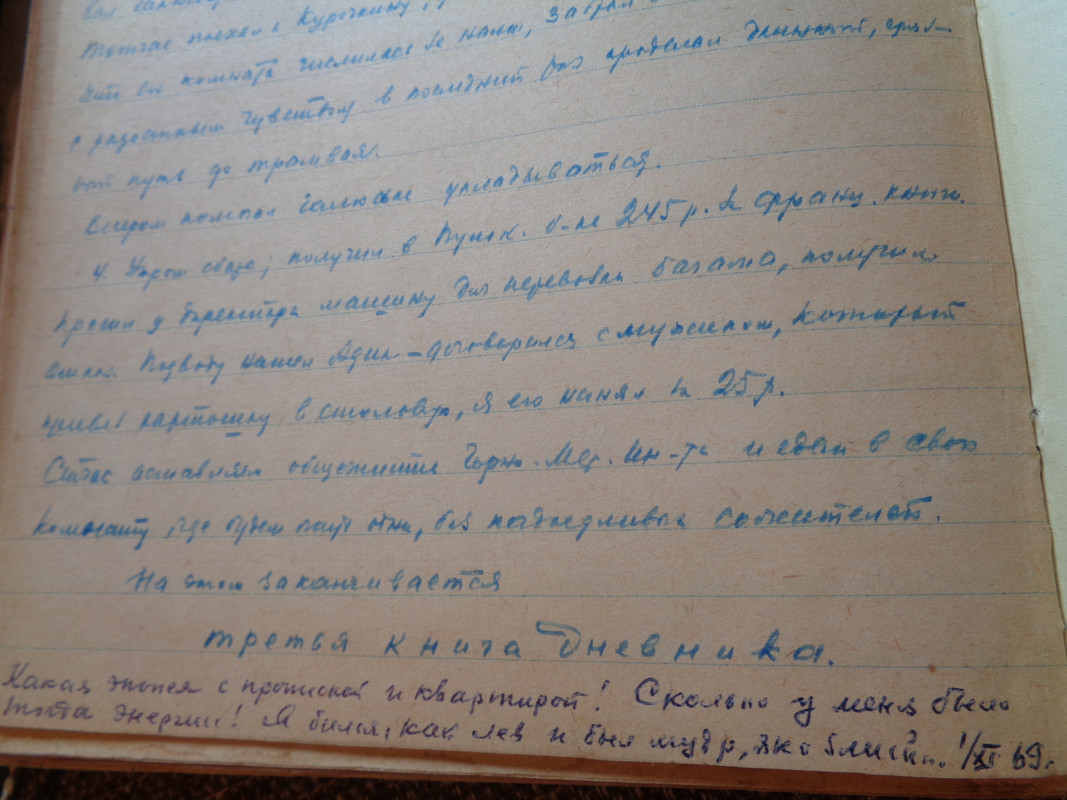 Тотчас поехал к Курочкину,
его комната числилась за нами, забрал
с радостным чувством в последний раз проделал длинный,
ный путь до трамвая.
Вечером помогал Галюське укладываться.
4. Утром сдаю; получил в Пушк. б-ке 245 р. за франц. книги.
Просил у директора машину для перевозки багажа, получил
отказ. Подводу нашел Адик – договорился с мужиком, который
привез картошку в столовую, я его нанял за 25 р.
Сейчас оставляем общежитие Мед. Ин-та и едем в свою
комнату, где будем жить одни, без надоедливых сожителей.
На этом заканчивается
третья книга дневника.
Какая эпопея с пропиской и квартирой! Сколько у меня было
тогда энергии! Я бился, как лев и был мудр, яко 1/XI 69 г.